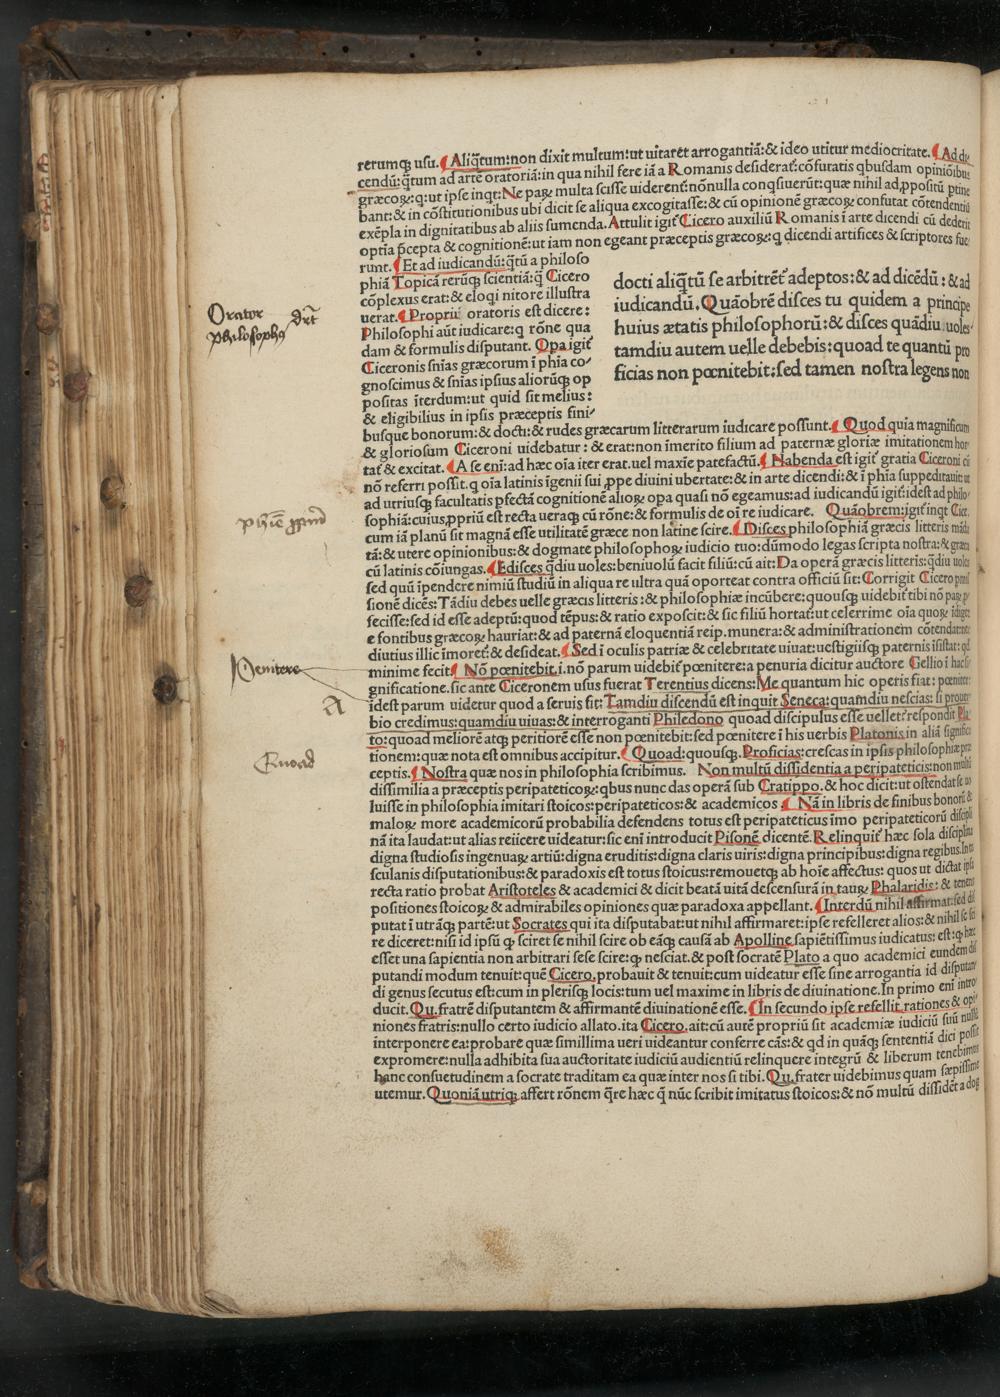 rerumqꝫ usu. Aliq̃tum: non dixit multum: ut uitaret arrogantiã: & ideo utitur mediocritate. Ad di-
cendũ: q̃tum ad artẽ oratoriã: in qua nihil fere iã a Romanis desiderat̃: cõfutatis qbusdam opiniõibus
græcoꝝ: q: ut ipse inqt: Ne paꝝ multa scisse uiderent̃: nõnulla conqsiuerũt: quæ nihil ad ꝓpositũ ptine
bant: & in cõstitutionibus ubi dicit se aliqua excogitasse: & cũ opinionẽ græcoꝝ confutat cõtendentiũ
exẽpla in dignitatibus ab aliis sumenda. Attulit igit̃ Cicero auxiliũ Romanis ĩ arte dicendi cũ dederit
optia p̃cepta & cognitionẽ: ut iam non egeant præceptis græcoꝝ: q dicendi artifices & scriptores fue
runt. Et ad iudicandũ: q̃tũ a philoso
phiã Topicã rerũqꝫ scientiã: q̃ Cicero
cõplexus erat: & eloqi nitore illustra
uerat. Propriũ oratoris est dicere:
Philosophi aũt iudicare: q rõne qua
dam & formulis disputant. Opa igit̃
Ciceronis sñias græcorum ĩ phia co
gnoscimus & sñias ipsius aliorũqꝫ op
positas ĩterdum: ut quid sit melius:
& eligibilius in ipsis præceptis fini
docti aliq̃tũ se arbitrẽt̃ adeptos: & ad dicẽdũ: & ad
iudicandũ. Quãobrẽ disces tu quidem a principe
huius ætatis philosophorũ: & disces quãdiu uoles
tamdiu autem uelle debebis: quoad te quantũ pro
ficias non pœnitebit: sed tamen nostra legens non
busque bonorum: & docti: & rudes græcarum litterarum iudicare possunt. Quod quia magnificum
& gloriosum Ciceroni uidebatur: & erat: non ĩmerito filium ad paternæ gloriæ imitationem hor
tat̃ & excitat. A se enĩ: ad hæc oĩa iter erat. uel maxĩe patefactũ. Habenda est igit̃ gratia Ciceroni cũ
nõ referri possit. q oĩa latinis ĩgenii sui ꝓpe diuini ubertate: & in arte dicendi: & ĩ phia suppeditauit: ut
ad utriusqꝫ facultatis pfectã cognitionẽ alioꝝ opa quasi nõ egeamus: ad iudicandũ igit̃: idest ad philo
sophiã: cuius ꝓpriũ est recta ueraqꝫ cũ rõne: & formulis de oĩ re iudicare. Quãobrem: igit̃ inqt Cice.
cum iã planũ sit magnã esse utilitatẽ græce non latine scire. Disces philosophiã græcis litteris
tã: & utere opinionibus: & dogmate philosophoꝝ iudicio tuo: dũmodo legas scripta nostra: & græca
cũ latinis cõiungas. Edisces q̃diu uoles: beniuolũ facit filiũ: cũ ait: Da operã græcis litteris: q̃diu uoles
sed quũ ĩpendere nimiũ studiũ in aliqua re ultra quã oporteat contra officiũ sit: Corrigit Cicero
sionẽ dicẽs: Tãdiu debes uelle græcis litteris: & philosophiæ incũbere: quousqꝫ uidebit̃ tibi nõ paꝝ
fecisse: sed id esse adeptũ: quod tẽpus: & ratio exposcit: & sic filiũ hortat̃: ut celerrime oĩa quoꝝ ĩdiget
e fontibus græcoꝝ hauriat: & ad paternã eloquentiã reip. munera: & administrationẽm cõtendat: ne
diutius illic ĩmoret̃: & desideat. Sed ĩ oculis patriæ & celebritate uiuat: uestigiisqꝫ paternis ĩsistat: qd
minime fecit. Nõ pœnitebit. i. nõ parum uidebit̃ pœnitere: a penuria dicitur auctore Gellio ĩ hac si
gnificatione. sic ante Ciceronem usus fuerat Terentius dicens: Me quantum hic operis fiat: pœnitet:
idest parum uidetur quod a seruis fit: Tamdiu discendũ est inquit Seneca: quamdiu nescias: si prouer
bio credimus: quamdiu uiuas: & interroganti Philedono quoad discipulus esse uellet? respondit Pla
to: quoad meliorẽ atqꝫ peritiorẽ esse non pœnitebit: sed pœnitere ĩ his uerbis Platonis in aliã significa
tionem: quæ nota est omnibus accipitur. Quoad: quousqꝫ. Proficias: crescas in ipsis philosophiæ præ
ceptis. Nostra quæ nos in philosophia scribimus. Non multũ dissidentia a peripateticis: non multũ
dissimilia a præceptis peripateticoꝝ: qbus nunc das operã sub Cratippo. & hoc dicit: ut ostendat se uo
luisse in philosophia imitari stoicos: peripateticos: & academicos. Nã in libris de finibus bonorũ &
maloꝝ more academicorũ probabilia defendens totus est peripateticus ĩmo peripateticorũ discipli
nã ita laudat: ut alias reiicere uideatur: sic enĩ introducit Pisonẽ dicentẽ. Relinquit̃ hæc sola disciplina
digna studiosis ingenuaꝝ artiũ: digna eruditis: digna claris uiris: digna principibus: digna regibus. In tu
sculanis disputationibus: & paradoxis est totus stoicus: remouetqꝫ ab hoĩe affectus: quos ut dictat ipsa
recta ratio probat Aristoteles & academici & dicit beatã uitã descensurã in tauꝝ Phalaridis: & tenens
positiones stoicoꝝ & admirabiles opiniones quæ paradoxa appellant. Interdũ nihil affirmat: sed dis
putat ĩ utrãqꝫ partẽ: ut Socrates qui ita disputabat: ut nihil affirmaret: ipse refelleret alios: & nihil se sci
re diceret: nisi id ipsũ ꝙ sciret se nihil scire ob eãqꝫ causã ab Apolline sapiẽtissimus iudicatus: est: ꝙ hæc
esset una sapientia non arbitrari sese scire: ꝙ nesciat. & post socratẽ Plato a quo academici eundem dis
putandi modum tenuit: quẽ Cicero. probauit & tenuit: cum uideatur esse sine arrogantia id disputan
di genus secutus est: cum in plerisqꝫ locis: tum uel maxime in libris de diuinatione. In primo enĩ intro
ducit. Qu. fratrẽ disputantem & affirmantẽ diuinationẽ esse. In secundo ipse refellit rationes & opi
niones fratris: nullo certo iudicio allato. ita Cicero. ait: cũ autẽ propriũ sit academiæ iudiciũ suũ nullũ
interponere ea: probare quæ simillima ueri uideantur conferre cãs: & qd in quãqꝫ sententiã dici possit
expromere: nulla adhibita sua auctoritate iudiciũ audientiũ relinquere integrũ & liberum tenebimus
hanc consuetudinem a socrate traditam ea quæ inter nos si tibi. Qu. frater uidebimus quam sæpissime
utemur. Quoniã utriqꝫ affert rõnem q̃re hæc q̃ nũc scribit imitatus stoicos: & nõ multũ dissidẽt a dog
Orator
philosophꝰ
Penitere
A
Quoad